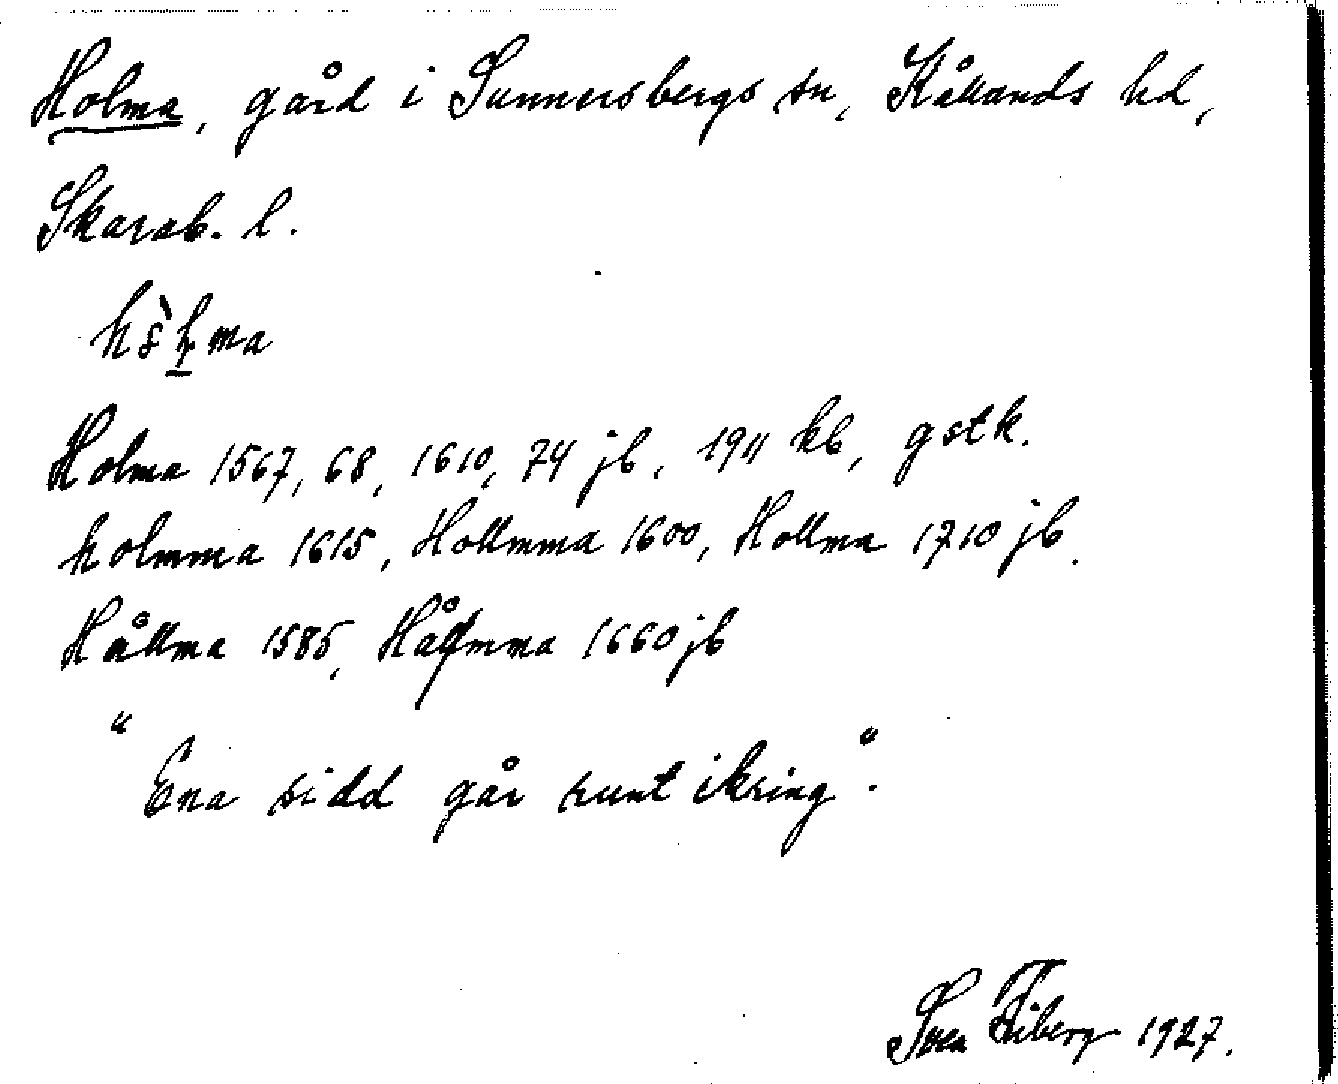 Holma, gård i Sunnersbergs sn, Kållands hd,
Skarab. l.
Holma 1567, 68, 1610, 74 jb, 1911 kb, gstk.
holmma 1615, Hollmma 1600, Hollma 1710 jb.
Hållma 1585, Hålmma 1660 jb
"Ena sidd går runt ikring".
Sven Fiberg 1927.